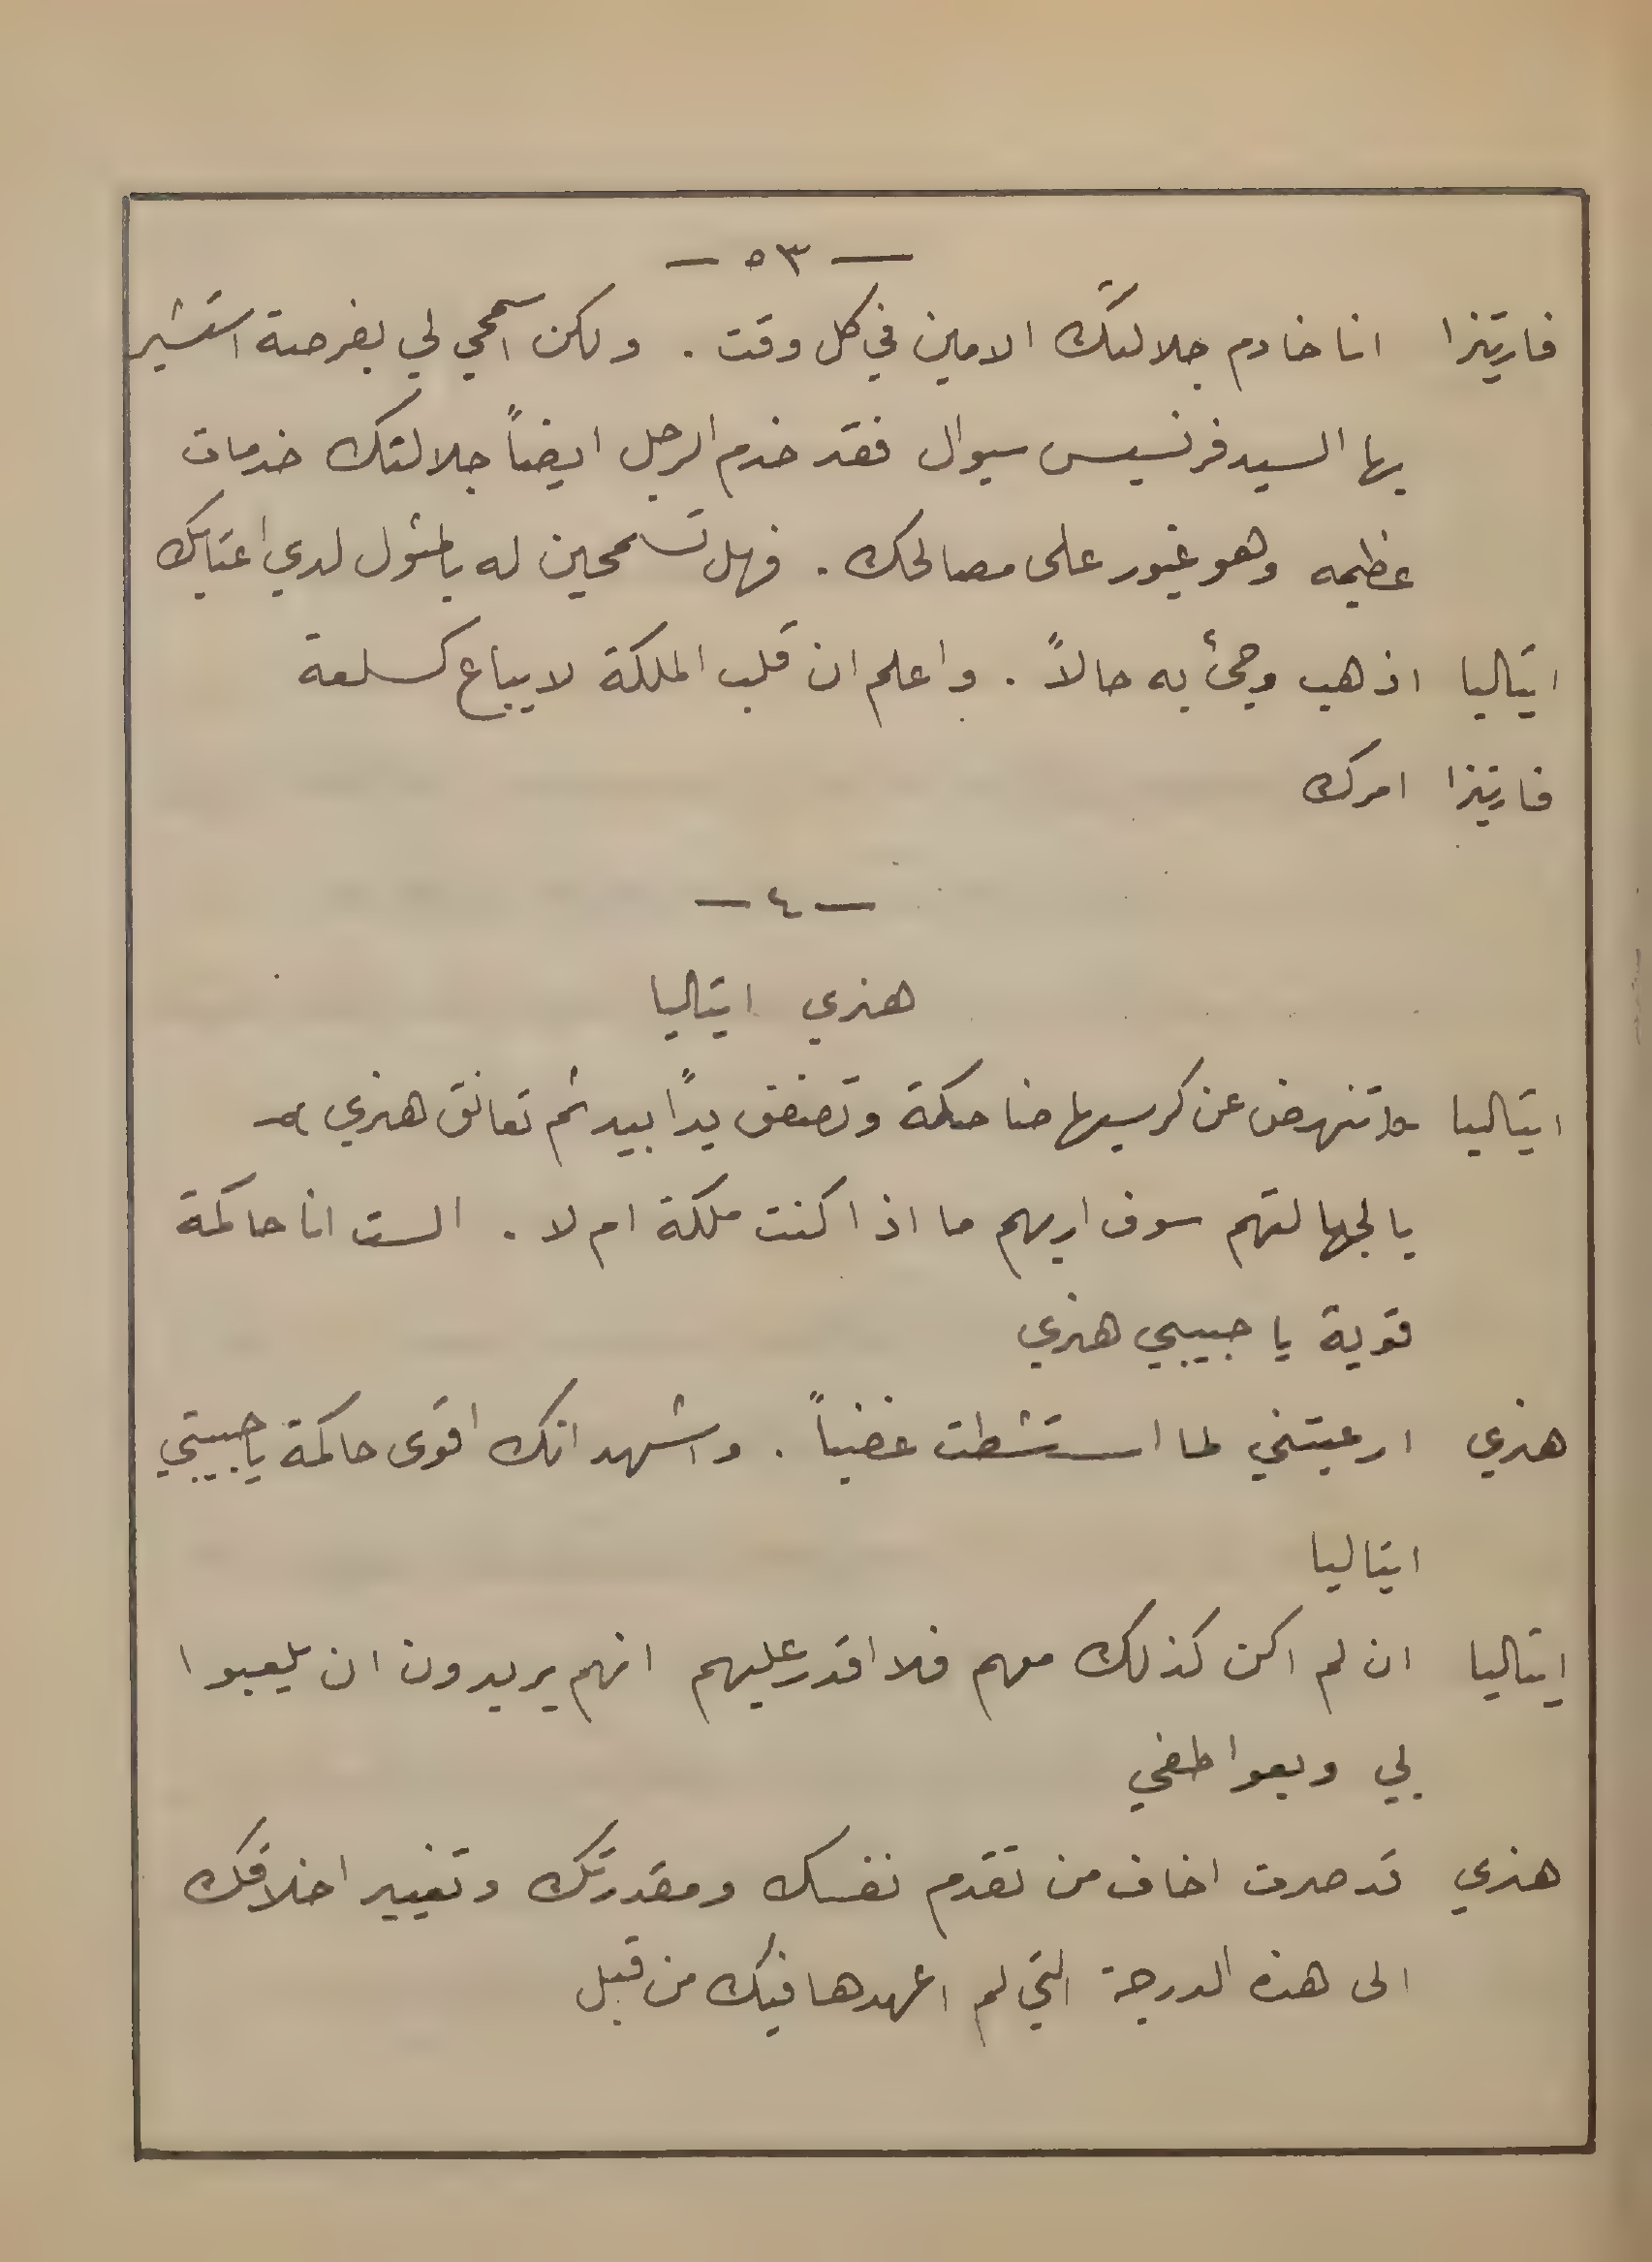 — ٥٣ —
فارتيزا انا خادم جلالتك الامين في كل وقت . ولكن اسمحي لي بفرصة استشير
بها السيد فرنسيس سيوال فقد خدم الرجل ايضاً جلالتك خدمات
عظيمه وهو غيور على مصالحك . فهل تسمحين له بالمثول لدي اعتابك
ايتاليا اذهب وجئ به حالاً . واعلم ان قلب الملكة لا يباع كسلعة
فارتيزا امرك
— ٤ —
هنري ايتاليا
ايتاليا تنهض عن كرسيها ضاحكة وتصفق يداً بيد ثم تعانق هنري
يا لجهالتهم سوف اريهم ما اذا كنت ملكة ام لا . الست انا حاكمة
قوية يا حبيبي هنري
هنري ارعبتني لما استشطت غضباً . واشهد انك اقوى حاكمة يا حبيبتي
ايتاليا
ايتاليا ان لم اكن كذلك معهم فلا اقدر عليهم انهم يريدون ان يلعبوا
بي وبعواطفي
هنري قد صرت اخاف من تقدم نفسك ومقدرتك وتغيير اخلاقك
الى هذه الدرجة التي لم اعهدها فيك من قبل